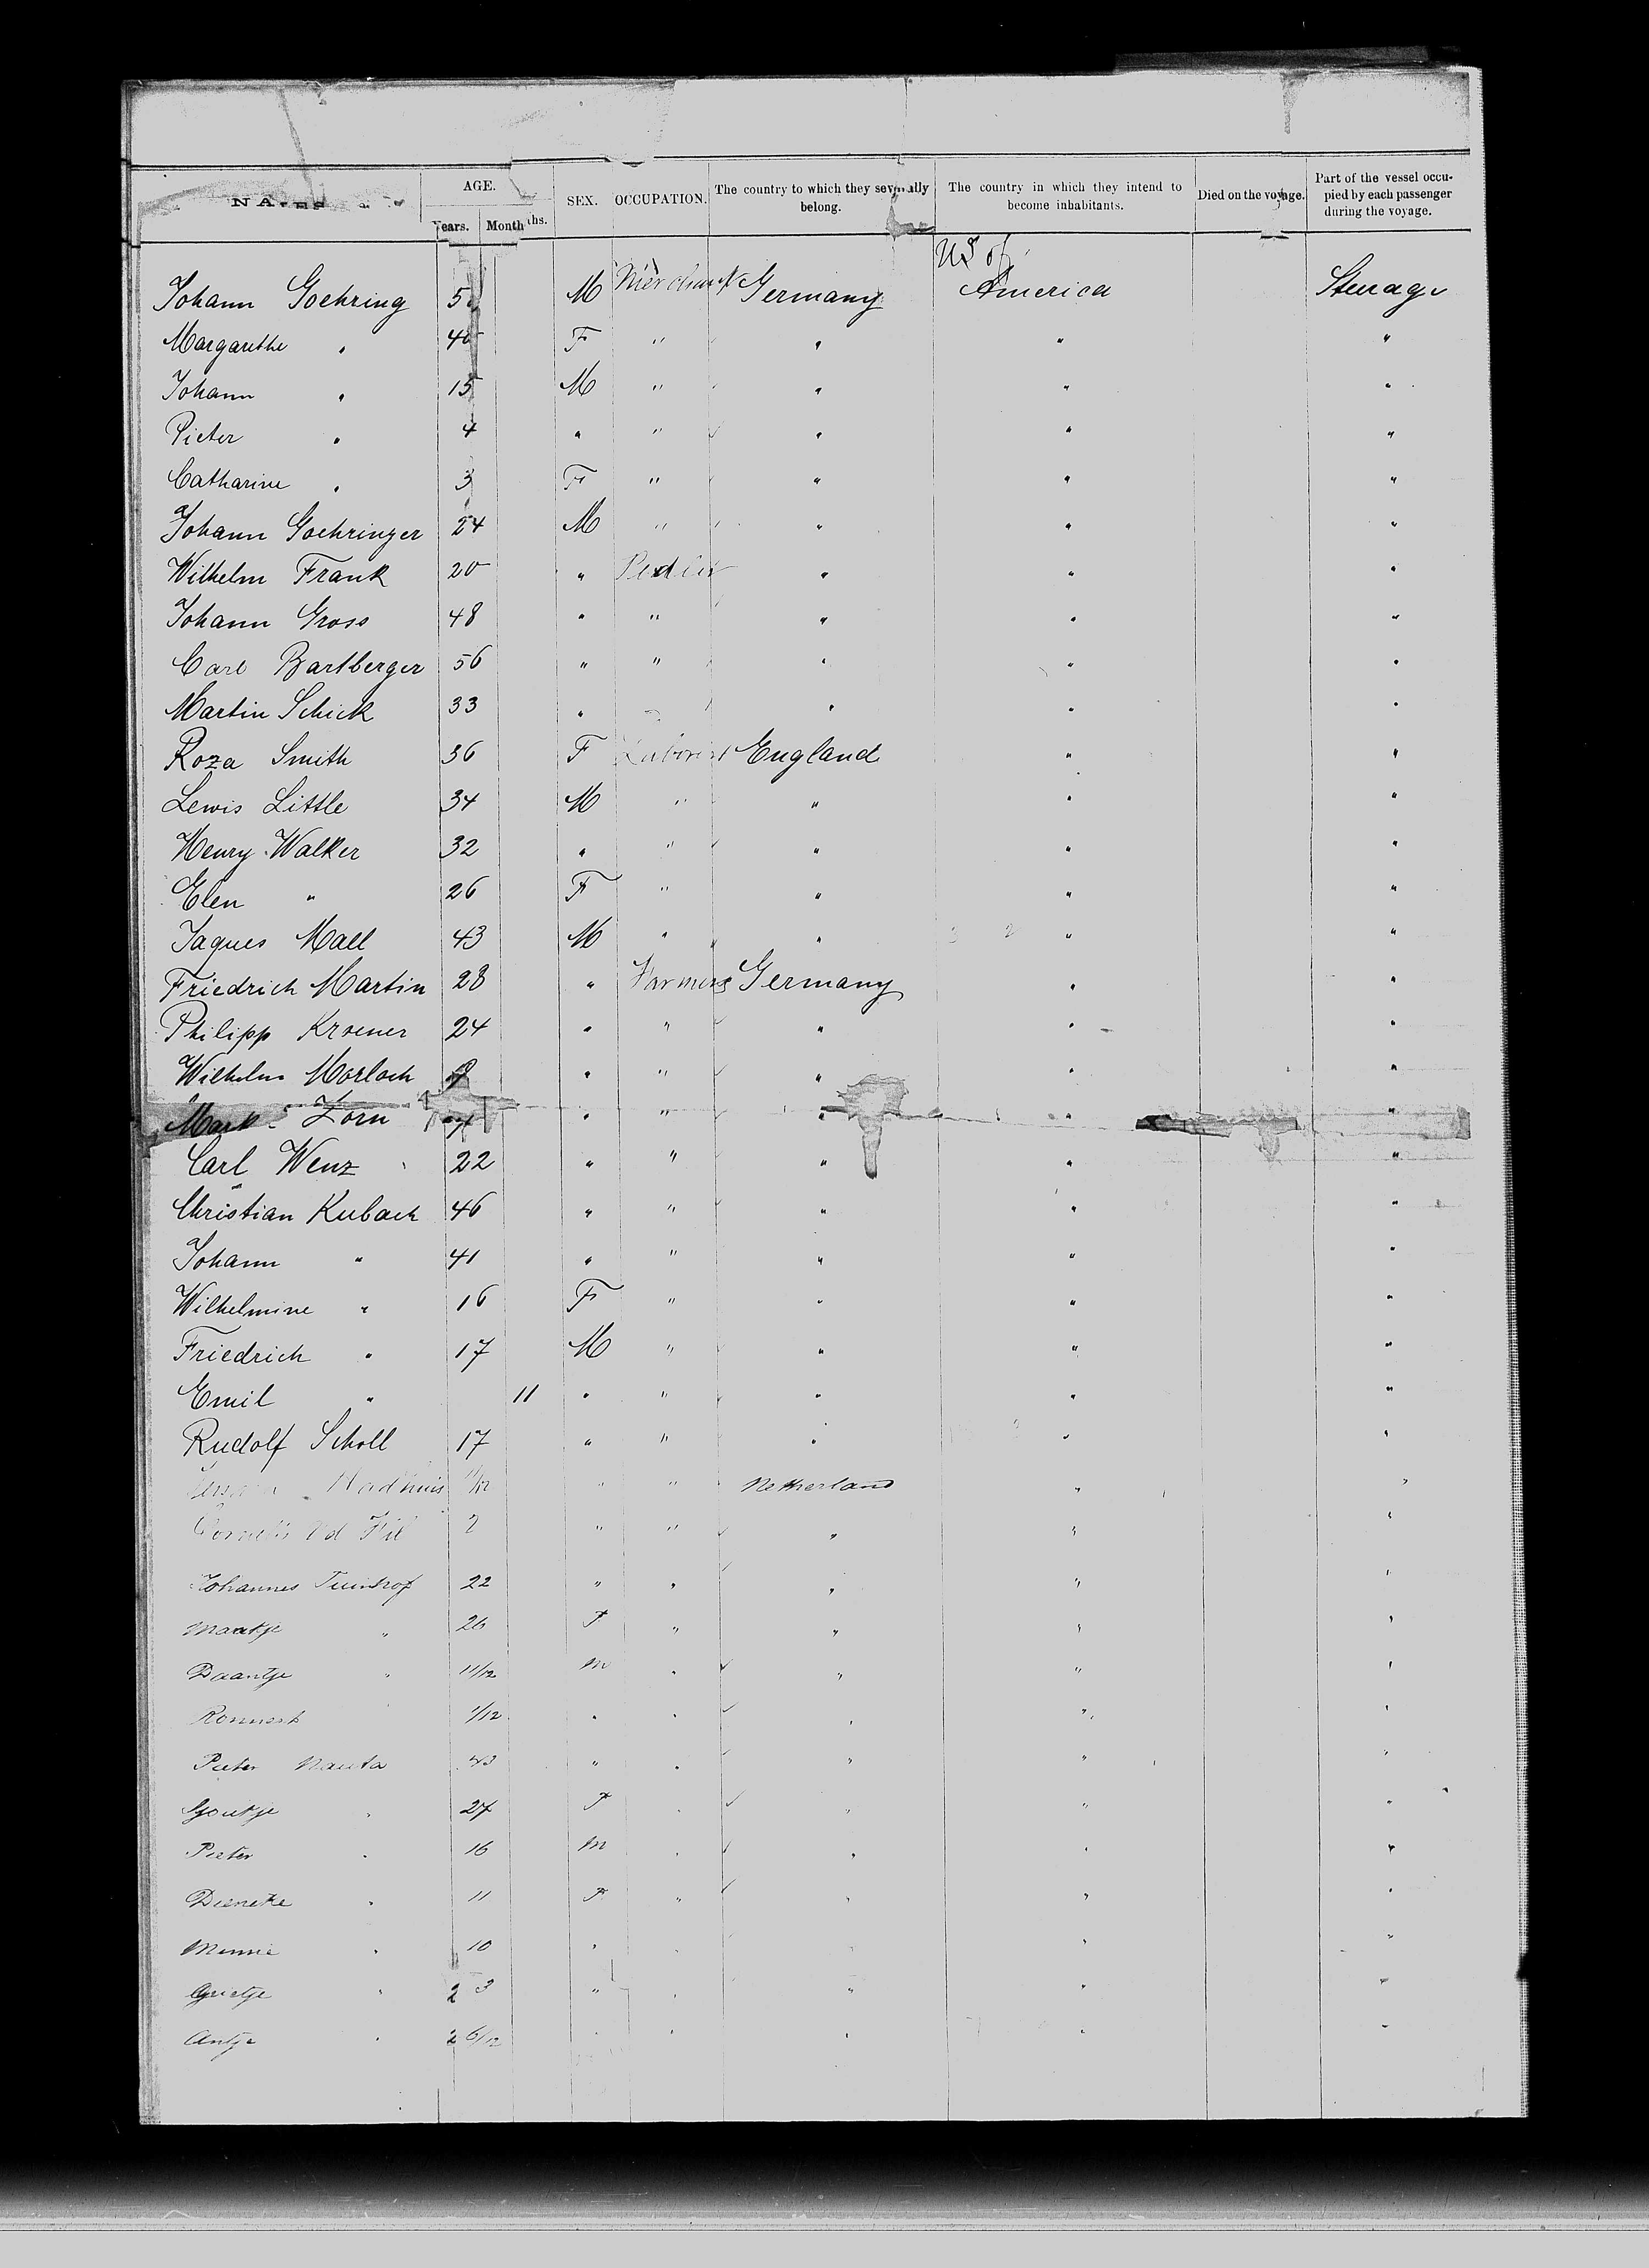 NAMES
AGE.
Years. Months.
SEX. OCCUPATION.
The country to which they severally belong.
The country in which they intend to become inhabitants.
Died on the voyage.
Part of the vessel occupied by each passenger during the voyage.
US of
Johann Goehring M Merchant Germany America Steerage
Margarethe " F " " " "
Johann " 15 M " " " "
Pieter " 4 " " " " "
Catharine " 3 F " " " "
Johann Goehringer 24 M " " " "
Wilhelm Frank 20 " Pedler " " "
Johann Gross 48 " " " " "
Carl Bartberger 56 " " " " "
Martin Schick 33 " " " "
Roza Smith 36 F England " "
Lewis Little 34 M " " " "
Henry Walker 32 " " " " "
Elen " 26 F " " " "
Jaques Mall 43 M " " " "
Friedrich Martin 28 " Farmers Germany " "
Philipp Kroener 24 " " " " "
Wilhelm Morlock " " " " "
Mark Zorn " " " " "
Carl Wenz 22 " " " " "
Christian Kubach 46 " " " " "
Johann " 41 " " " " "
Wilhelmine " 16 F " " " "
Friedrich " 17 M " " " "
Emil " 11 " " " " "
Rudolf Scholl 17 " " " " "
" " Netherland " "
2 " " " " "
Johannes 22 " " " " "
Maatje " 26 F " " " "
Daantje " 11/12 M " " " "
1/12 " " " " "
Pieter Nauta 43 " " " " "
Sjoukje " 24 F " " " "
Pieter " 16 M " " " "
Dieneke " 11 F " " " "
Minnie " 10 " " " " "
Grietje " 2 3 " " " " "
Antje " 2 6/12 " " " " "